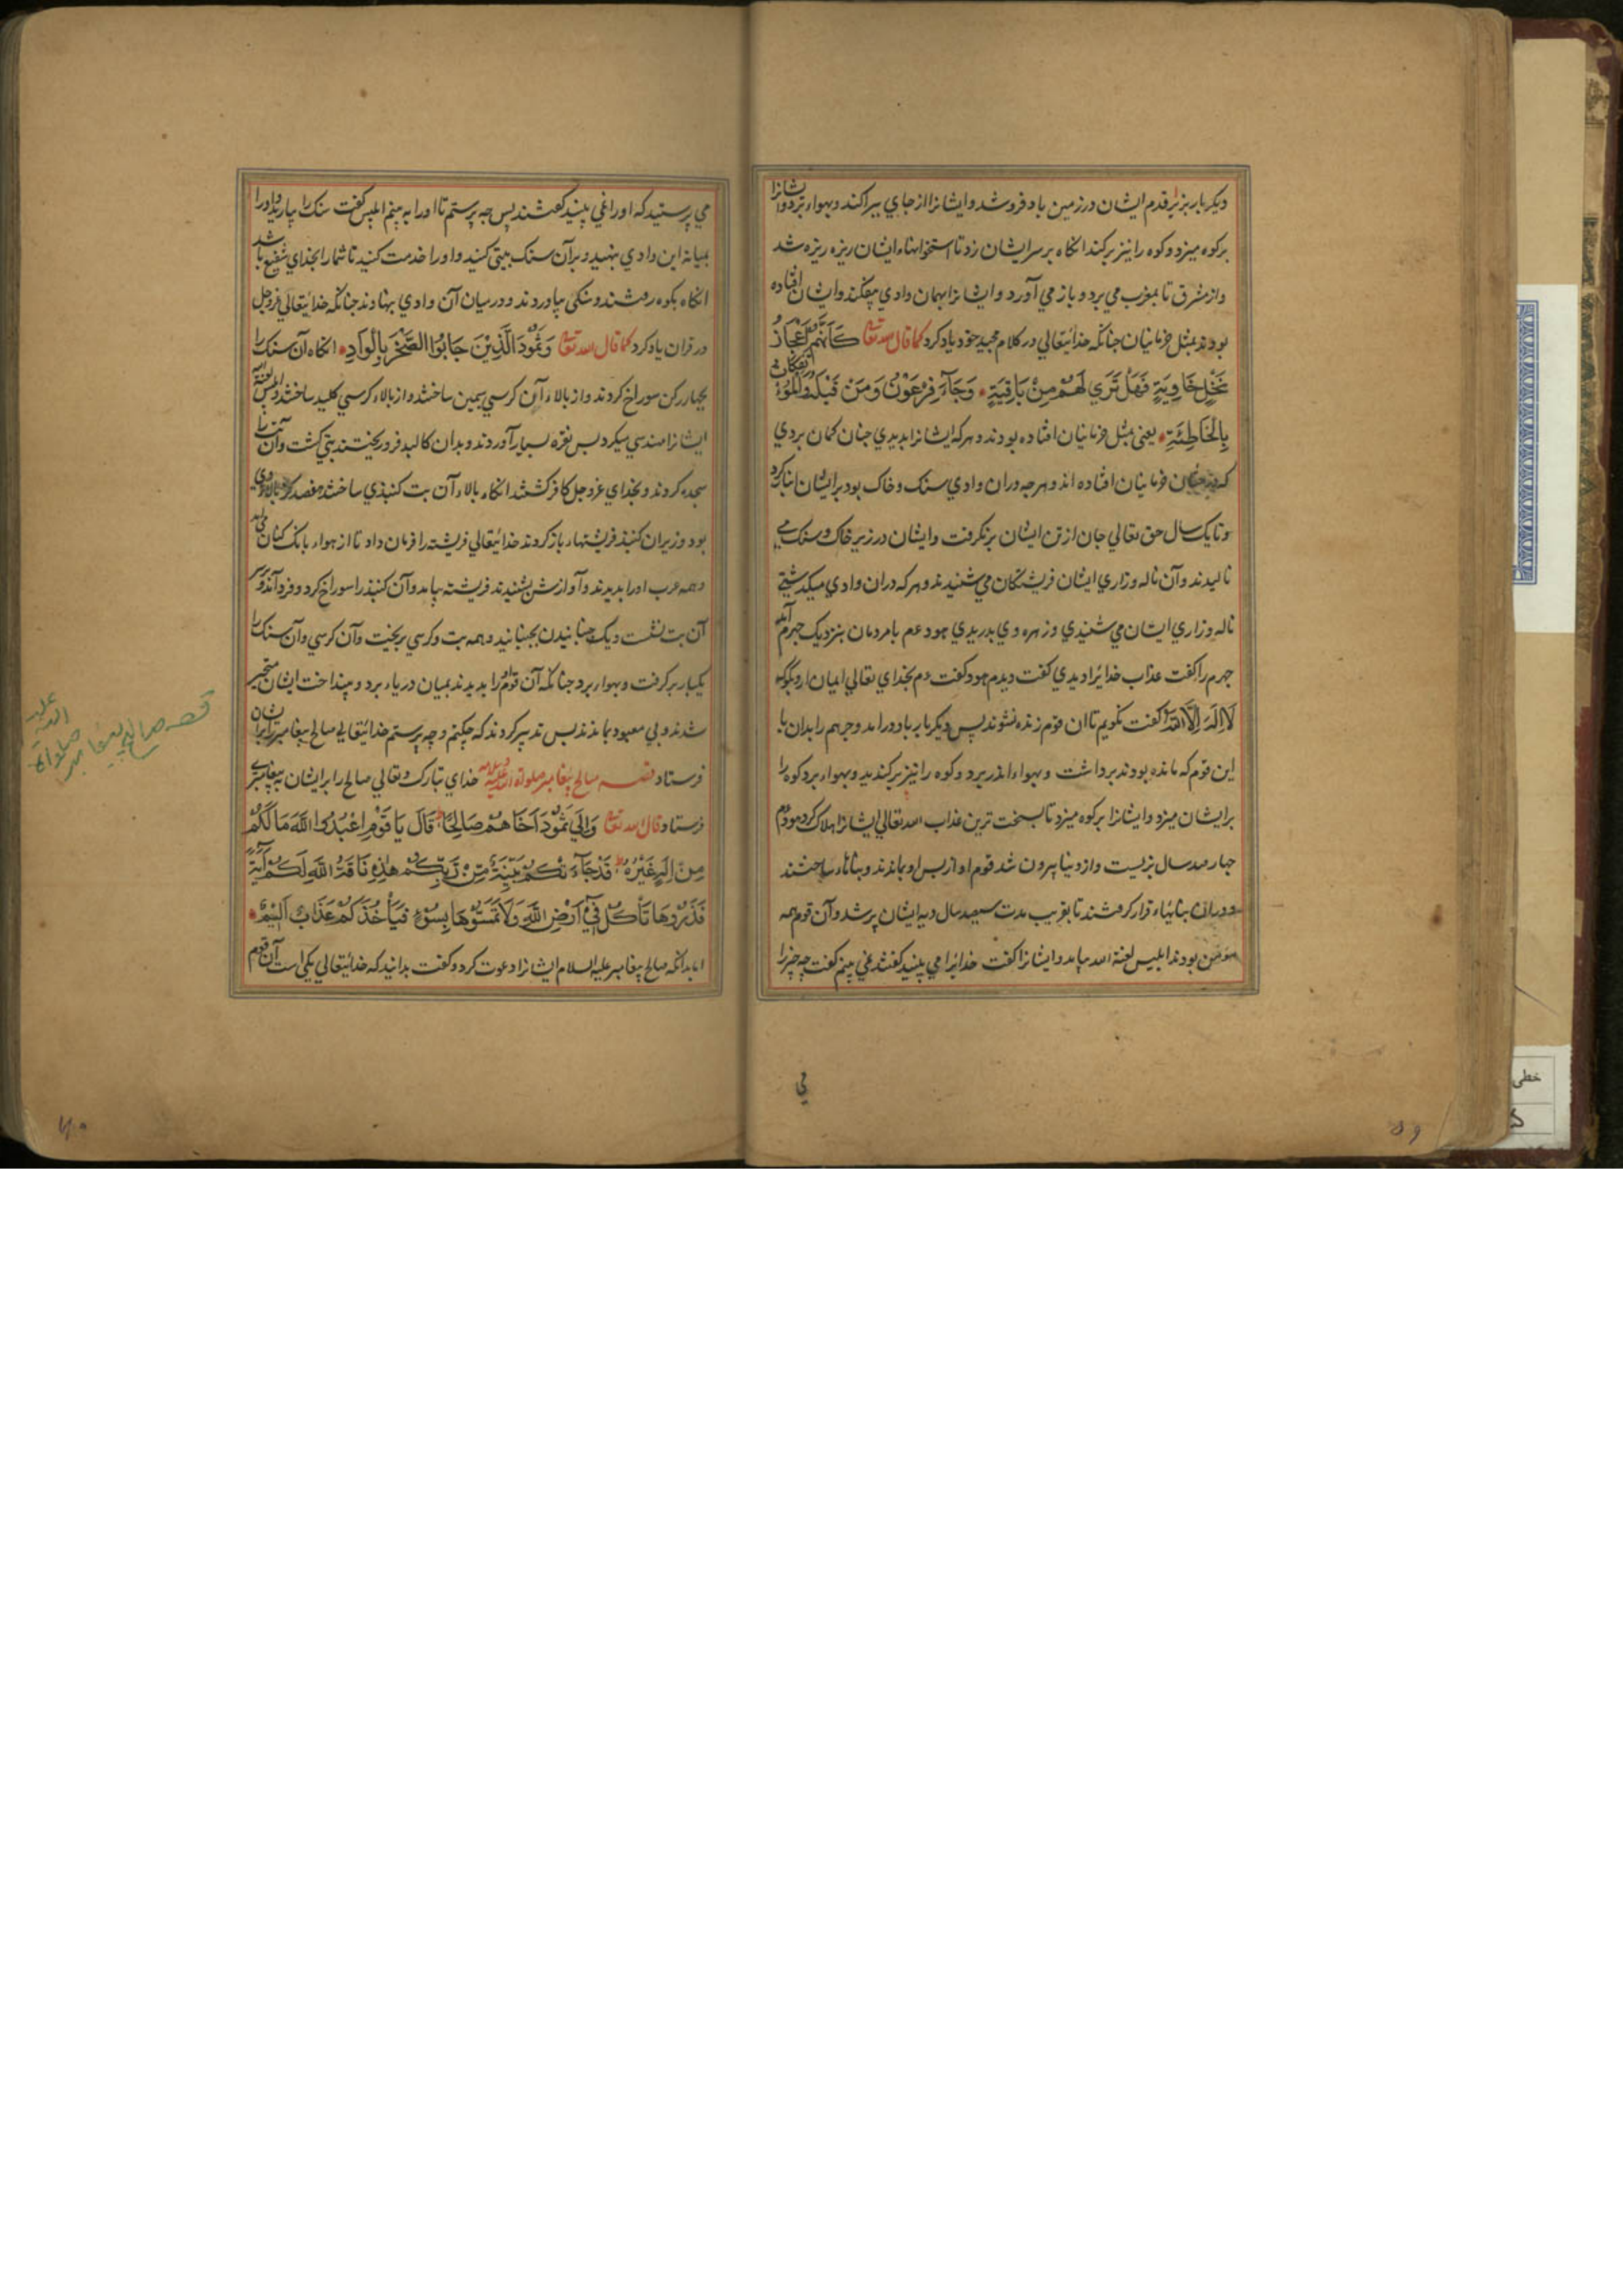 دیکر بار بزیر قدم ایشان در زمین باد فرو شد و ایشانرا از جای برکند و بهواء برد و ایشانرا
برکوه میزد و کوه را نیز برکند انکاه بر سر ایشان زد تا استخوانهاء ایشان ریزه ریزه شد
و از مشرق تا بمغرب می برد و باز می آورد و ایشانرا بهمان وادی بیفکند و ایشان افتاده
بودند بمثل خرمابنان جنانکه خدایتعالی در کلام مجید خود یاد کرد کما قال الله تعالی کَأَنَّهُمْ أَعْجَازُ
نَخْلٍ خَاوِیَةٍ فَهَلْ تَرَی لَهُمْ مِنْ بَاقِیَةٍ وَجَآءَ فِرْعَوْنُ وَمَنْ قَبْلَهُ وَالْمُؤْتَفِکَاتُ
بِالْخَاطِئَةِ یعنی بمثل خرمابنان افتاده بودند و هرکه ایشانرا بدیدی جنان کمان بردی
که خرمابنان افتاده اند و هرجه دران وادی سنک و خاک بود بر ایشان انبار کرد
و تا یک سال حق تعالی جان از تن ایشان برنکرفت و ایشان در زیر خاک و سنک می
نالیدند و آن ناله و زاری ایشان فریشتکان می شنیدند و هرکه دران وادی میکدشتی
ناله و زاری ایشان می شنیدی و زهره وی بدریدی هود عم با مردمان بنزدیک جرهم آمد
جرهم را کفت عذاب خدایرا دیدی کفت دیدم هود کفت عم بخدای تعالی ایمان ار و بکو که
لَا اِلَهَ اِلَّا اللَّهُ کفت نکویم تا ان قوم زنده نشوند پس دیکر بار باد درامد و جرهم را بدان با
این قوم که مانده بودند برداشت و بهواء اندر برد و کوه را نیز برکندید و بهواء برد کوه را
بر ایشان میزد و ایشانرا برکوه میزد تا بسخت ترین عذاب الله تعالی ایشانرا هلاک کرد هود عم
جهار صد سال بزیست و از دنیا بیرون شد قوم او از بس او بماندند و بناهاء ساختند
و دران بناهاء قرار کرفتند تا بقریب مدت سیصد سال دیه ایشان پر شد و آن قوم همه
مؤمن بودند ابلیس لعنة الله بیامد و ایشانرا کفت خدایرا می بینید کفتند نمی بینم کفت چه چیز را
می
می پرستید که او را نمی بینید کفتند پس چه پرستم تا او را به بینم ابلیس کفت سنک را بیارید و او را
بمیانه این وادی بنهید و بر آن سنک بیتی کنید و او را خدمت کنید تا شمارا بخدای شفیع باشد
انکاه بکوه رفتند و سنکی بیاوردند و در میان آن وادی بنهادند جنانکه خدایتعالی عزوجل
در قران یاد کرد کما قال الله تعالی وَثَمُودَ الَّذِیْنَ جَابُوا الصَّخْرَ بِالْوَادِ انکاه آن سنک را
بجهار رکن سوراخ کردند و از بالاء آن کرسی سیمین ساختند و از بالاء کرسی کلید ساختند و ابلیس لعنة الله
ایشانرا مهندسی میکرد بس نقره بسیار آوردند و بدان کالبد فرو ریختند بتی کشت و آن بت را
سجده کردند و بخدای عزوجل کافر کشتند انکاه بالاء آن بت کنبذی ساختند
بود و زیر ان کنبذ فریشتهاء باز کردند خدایتعالی فریشته را فرمان داد تا از هواء بانک کنان می آمد
و همه عرب او را بدیدند و آوازش بشنیدند فریشته بیامد و آن کنبذ را سوراخ کرد و فرود آمد و بر سر
آن بت نشست و یک جنبانیدن بجنبانید و همه بت و کرسی بریخت و آن کرسی و آن سنک را
یکبار برکرفت و بهواء برد جنانکه آن قوم او را بدیدند بمیان دریاء برد و بینداخت ایشان متحیر
شدند و بی معبود بماندند بس تدبیر کردند که چکنم و چه پرستم خدایتعالی صالح پیغامبر را بر ایشان
فرستاد قصه صالح پیغامبر صلوة الله علیه وسلامه خدای تبارک و تعالی صالح را بر ایشان به پیغامبری
فرستاد قال الله تعالی وَاِلَی ثَمُوْدَ اَخَاهُمْ صَالِحًا قَالَ یَا قَوْمِ اعْبُدُوا اللَّهَ مَا لَکُمْ
مِنْ اِلَهٍ غَیْرُهُ قَدْ جَآءَتْکُمْ بَیِّنَةٌ مِّنْ رَّبِّکُمْ هَذِهِ نَاقَةُ اللَّهِ لَکُمْ آیَةً
فَذَرُوْهَا تَأْکُلْ فِیْ اَرْضِ اللَّهِ وَلَا تَمَسُّوْهَا بِسُوْءٍ فَیَأْخُذَکُمْ عَذَابٌ اَلِیْمٌ
اما بدانکه صالح پیغامبر علیه السلام ایشانرا دعوت کرد و کفت بدانید که خدایتعالی یکی است آن قوم
قصه صالح پیغامبر
صلواة الله علیه
خطی
۵۹